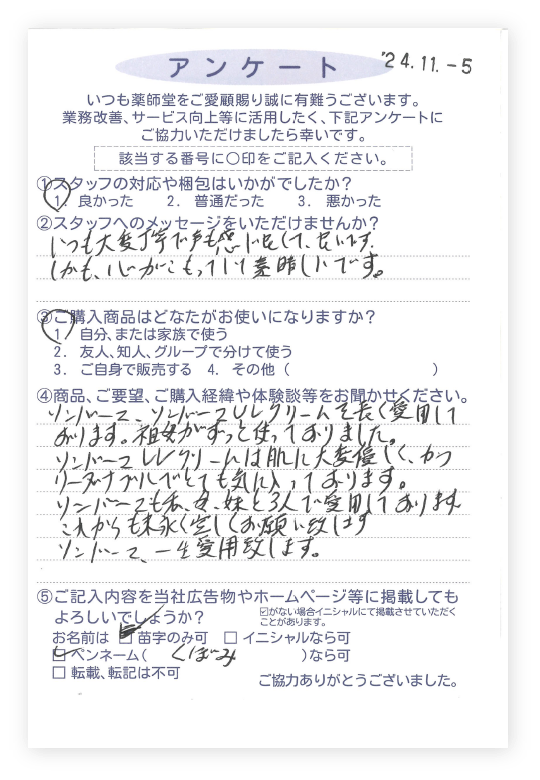 アンケート
'24.11.-5
いつも薬師堂をご愛顧賜り誠に有難うございます。
業務改善、サービス向上等に活用したく、下記アンケートに
ご協力いただけましたら幸いです。
該当する番号に〇印をご記入ください。
①スタッフの対応や梱包はいかがでしたか?
1. 良かった 2. 普通だった 3. 悪かった
②スタッフへのメッセージをいただけませんか?
いつも大変丁寧で声も感じ良して、良いです、
しかも、心がこもっていて素晴しいです。
③ご購入商品はどなたがお使いになりますか?
1. 自分、または家族で使う
2. 友人、知人、グループで分けて使う
3. ご自身で販売する 4. その他( )
④商品、ご要望、ご購入経緯や体験談等をお聞かせください。
ソンバーユ、ソンバーユULクリームを長く愛用して
おります。祖母がずっと使っておりました。
ソンバーユULクリームは肌に大変優しく、かつ
リーズナブルでとても気に入っております。
ソンバーユも私、母、妹と3人で愛用しております
これからも末永く宜しくお願い致します
ソンバーユ、一生愛用致します。
⑤ご記入内容を当社広告物やホームページ等に掲載しても
よろしいでしょうか?
☑がない場合イニシャルにて掲載させていただく
ことがあります。
お名前は ☑ 苗字のみ可 □ イニシャルなら可
☑ ペンネーム( くぼみ )なら可
□ 転載、転記は不可
ご協力ありがとうございました。